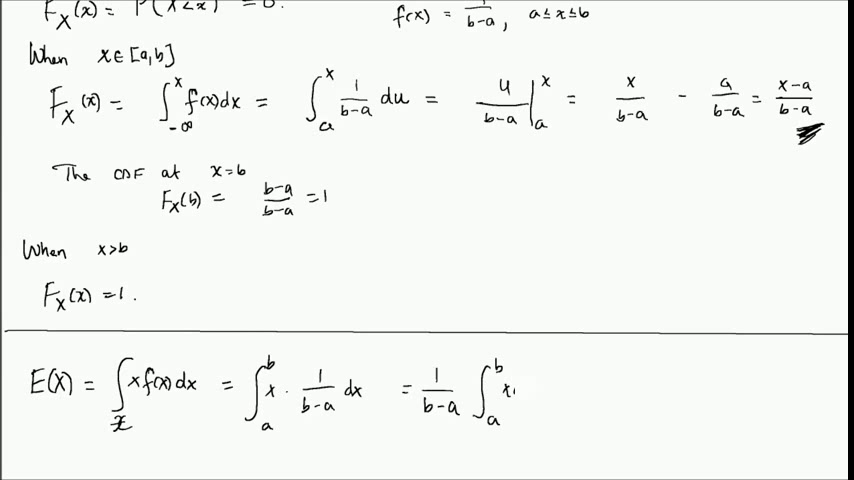 F_X(x) = P(X<x) = 0. f(x) = 1/(b-a), a≤x≤b
When x∈[a,b]
F_X(x) = ∫_{-∞}^{x} f(x)dx = ∫_a^x 1/(b-a) du = u/(b-a) |_a^x = x/(b-a) - a/(b-a) = (x-a)/(b-a)
The CDF at x=b
F_X(b) = (b-a)/(b-a) = 1
When x>b
F_X(x) = 1.
E(X) = ∫_x x f(x) dx = ∫_a^b x · 1/(b-a) dx = 1/(b-a) ∫_a^b x